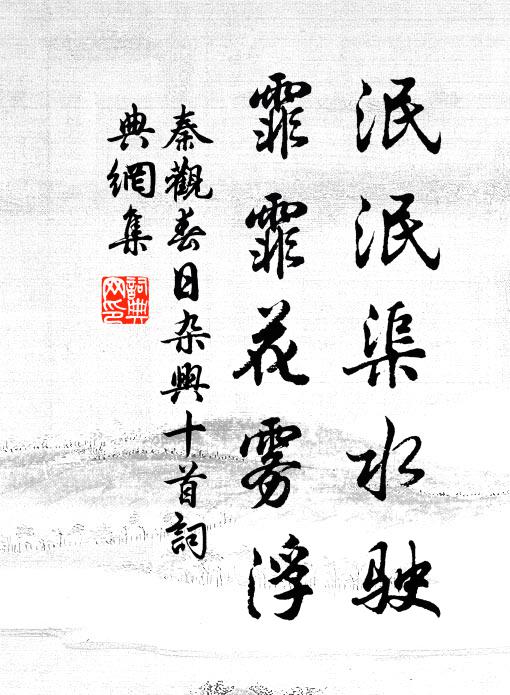 泯泯渠水駛
霏霏花雾浮
秦觀春日杂興十首詞
典網集
詞典网印